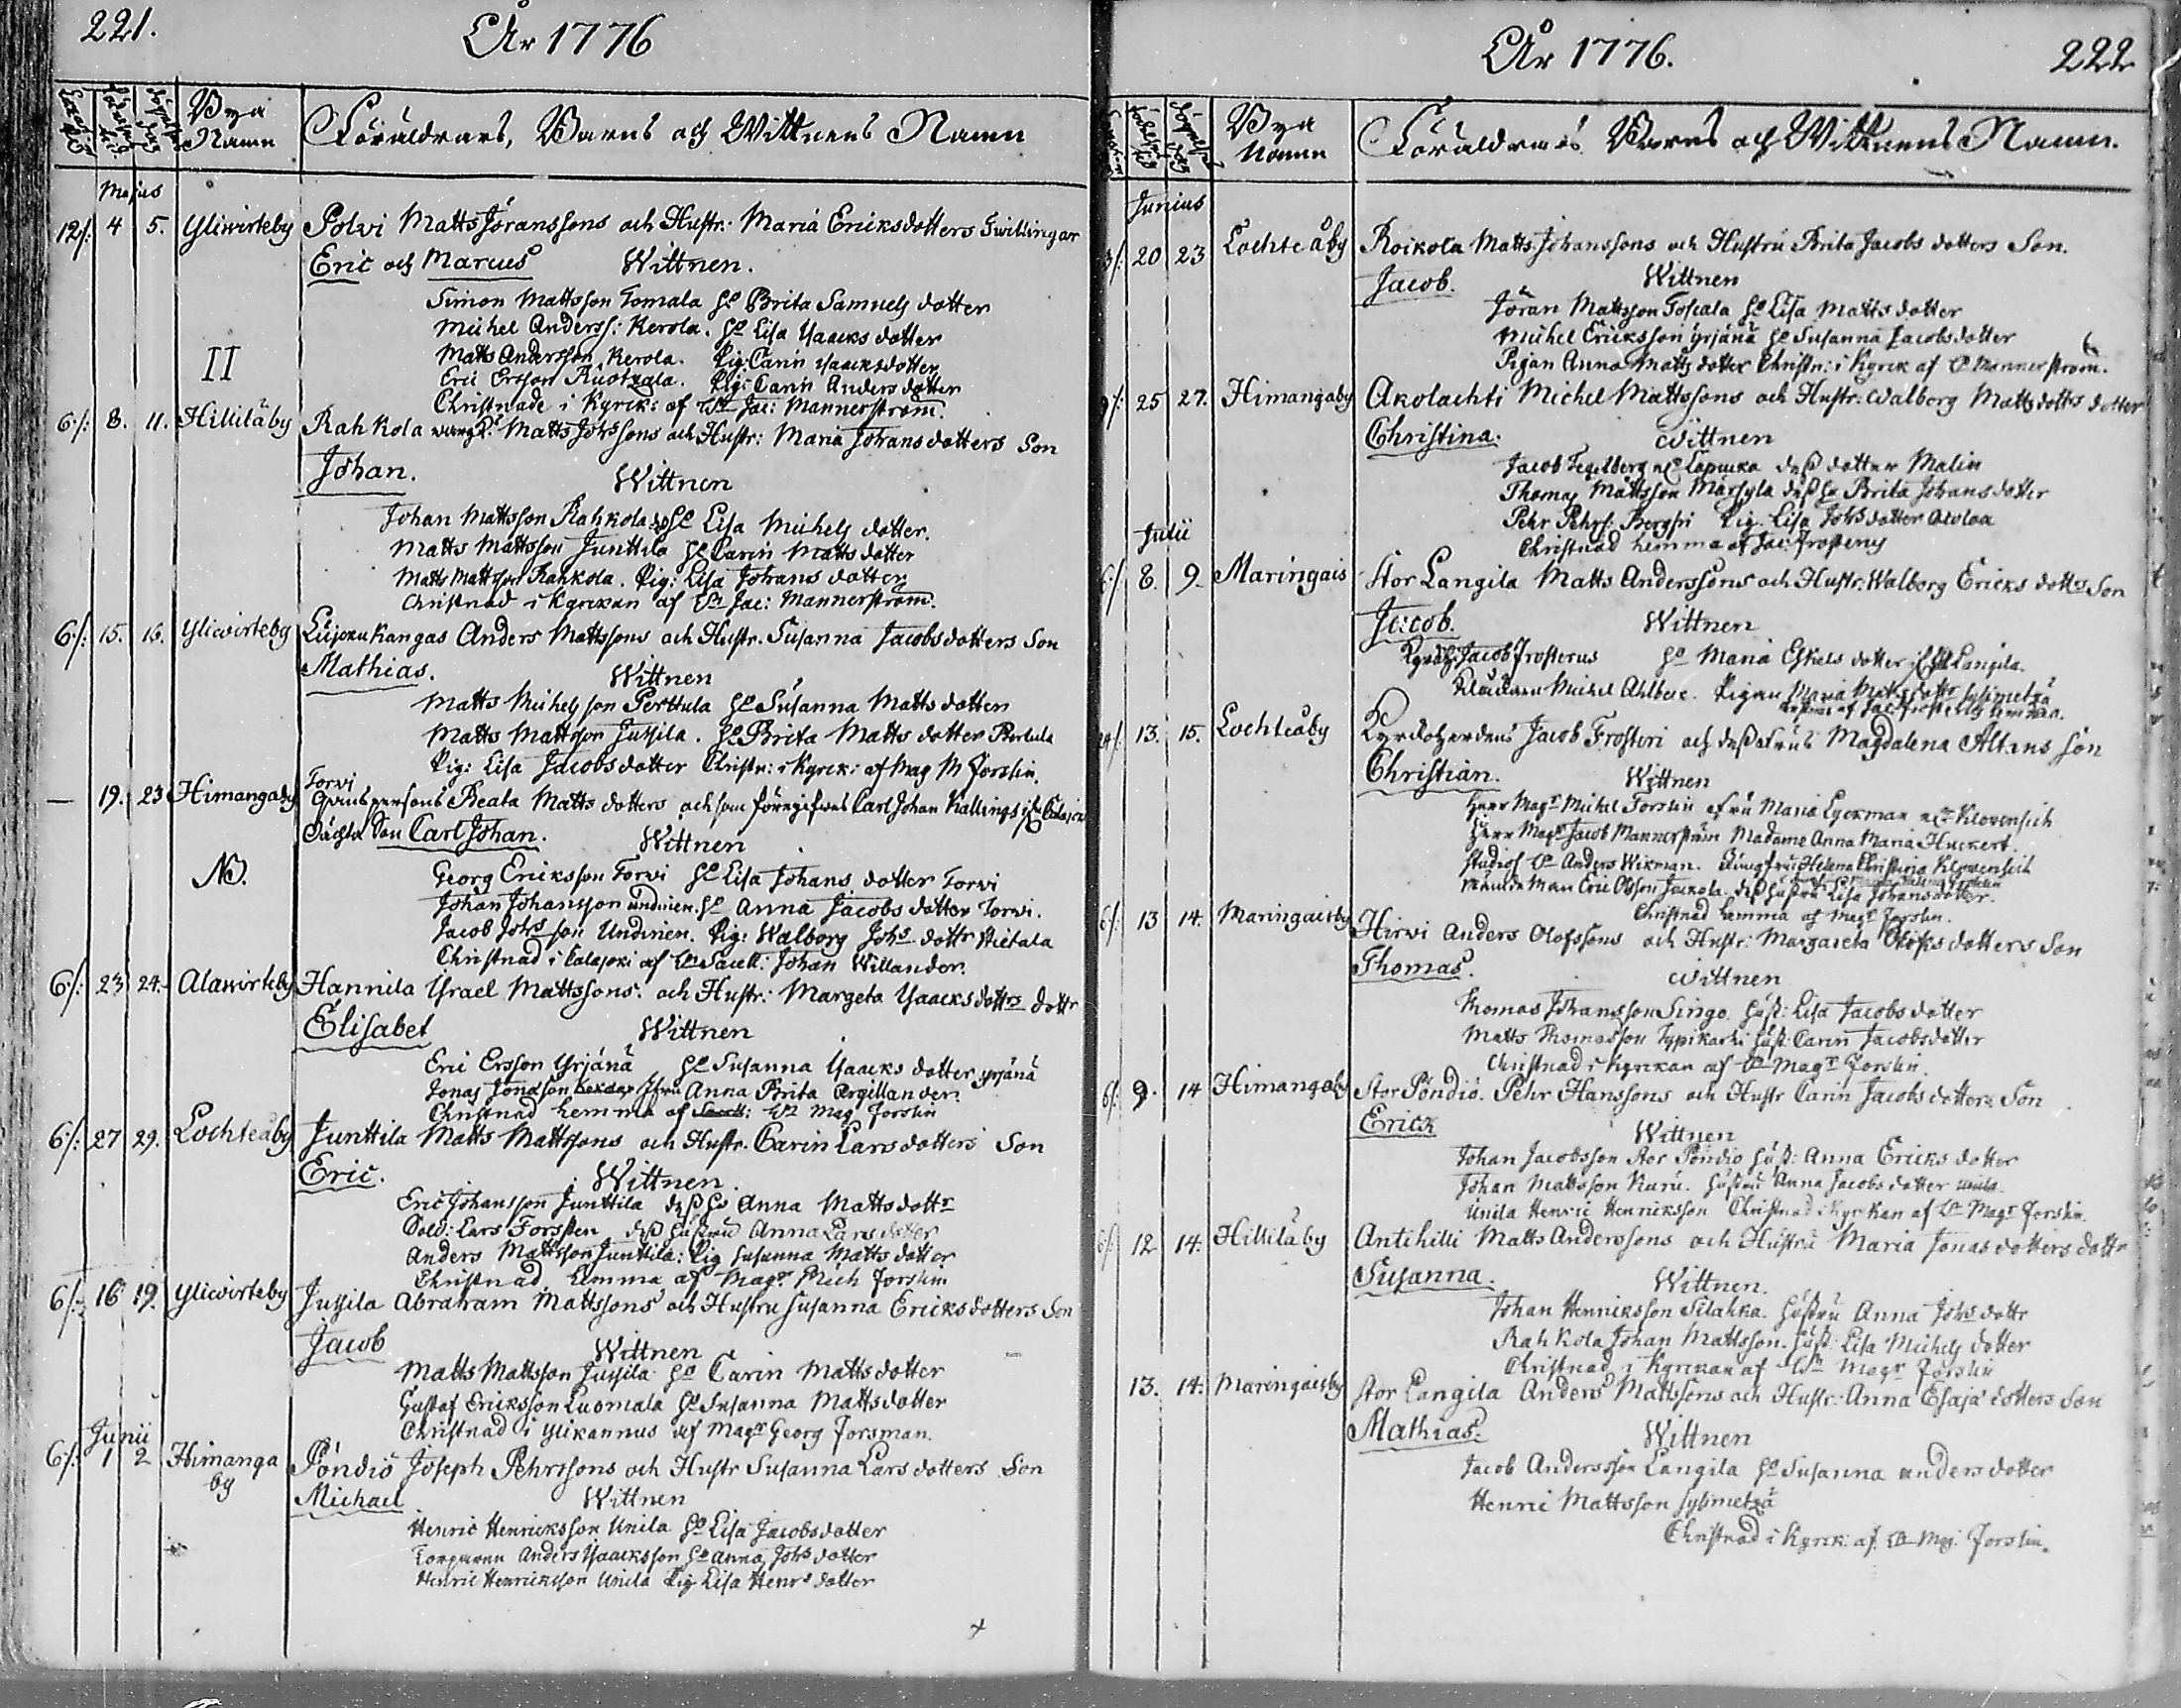 221.
År 1776
Bya
Namn
Föräldrars, Barns och Wittnens Namn
Majus
12/: 4 5. Yliwirteby Polvi Matts Jöranssons och Hustr: Maria Ericksdotters Twillingar
Eric och Marcus Wittnen.
Simon Mattsson Tomala Ho Brita Samuels dotter
Michel Anderss: Kerola. Ho Lisa Isaacks dotter
II Matts Andersson Kerola. Pig: Carin Isaacksdotter
Eric Ersson Ruotzala. Pig: Carin Anders dotter
Christnade i Kyrck: af Hr Jac: Mannerström.
6/: 8. 11. Hillilåby Rahkola Matts Johssons och Hustr: Maria Johansdotters Son
Johan. Wittnen
Johan Mattsson Rahkola Ho Lisa Michels dotter.
Matts Mattsson Junttila Ho Carin Matts dotter
Matts Mattsson Rahkola. Pig: Lisa Johans dotter
Christnad i Kyrckan af Hr Jac: Mannerström.
6/: 15. 16. Yliwirteby Anders Mattssons och Hustr. Susanna Jacobsdotters Son
Mathias. Wittnen
Matts Michelsson Perttula Ho Susanna Matts dotter
Matts Mattsson Jussila. Ho Brita Matts dotter Perttula
Pig: Lisa Jacobsdotter Christn: i Kyrck: af Mag M Forslin.
— 19. 23 Himangaby Torvi
Beata Matts dotters och som föregifves Carl Johan Kallings
Oächta Son Carl Johan. Wittnen
NB. Georg Ericksson Torvi Ho Lisa Johans dotter Torvi
Johan Johansson undinen. Ho Anna Jacobs dotter Torvi.
Jacob Johsson Undinen. Pig: Walborg Johs dottr Hietala
Christnad i Calajoki af Hr Sacell: Johan Willander.
6/: 23 24. Alawirteby Hannila Israel Mattssons och Hustr: Margeta Isaacks dottrs dottr
Elisabet Wittnen
Eric Ersson Yrjänä Ho Susanna Isaacks dotter Yrjänä
Jonas Jonasson Anna Brita Argillander
Christnad hemma af Hr Mag Forslin
6/: 27 29. Lochteåby Junttila Matts Mattssons och Hustr. Carin Lars dotters Son
Eric. Wittnen.
Eric Johansson Junttila dess Ho Anna Matts dottr
Sold: Lars Forssten dess hustru Anna Lars dotter
Anders Mattsson Junttila: Pig Susanna Matts dotter
Christnad hemma af Magr Mich Forslin
6/: 16 19. Yliwirteby Jussila Abraham Mattssons och Hustru Susanna Ericksdotters Son
Jacob Wittnen
Matts Mattsson Jussila Ho Carin Matts dotter
Gustaf Ericksson Luomala Ho Susanna Mattsdotter
Christnad i Ylikannus af Magr Georg Forsman.
Junii
6/: 1 2 Himanga
by Pöndiö Joseph Pehrssons och Hustr Susanna Lars dotters Son
Michael Wittnen
Henric Henricksson Unila Ho Lisa Jacobsdotter
Anders Isaacksson Ho Anna Johs dotter
Henric Henricksson Unila Pig Lisa Henrs dotter
År 1776.
222
Bya
Namn
Föräldrars Barns och Wittnens Namn.
Junius
20 23 Lochteåby Roikola Matts Johanssons och Hustru Brita Jacobs dotters Son.
Jacob. Wittnen
Jöran Mattsson Ho Lisa Matts dotter
Michel Ericksson Yrjänä Ho Susanna Jacobsdotter
Pigan Anna Matts dotter Christn: i Kyrck af Hr Mannerström.
25 27. Himangaby Akolachti Michel Mattssons och Hustr: Walborg Matts dotts dotter
Christina. Wittnen
Jacob Tegelberg dess dotter Malin
Thomas Mattsson Märsylä dess Ho Brita Johansdotter
Pehr Pehrs: Pig. Lisa Johs dotter
Christnad hemma af Jac: Frosterus
Julii
6/: 8. 9. Maringais Stor Langila Matts Anderssons och Hustr: Walborg Ericks dottrs Son
Jacob. Wittnen
Jacob Frosterus Ho Maria Eskels dotter Langila.
Michel Ahlbeck. Pigan Maria Matts dottr Sylimetzä
af Jac: Frosterus hemma.
13. 15. Lochteåby Kyrckoherdens Jacob Frosteri och dess Frus Magdalena Altans Son
Christian. Wittnen
Herr Magr Michel Forslin Fru Maria Eyckman
Herr Magr Jacob Mannerström Madame Anna Maria Huckert.
Studios Hr Anders Wikman. Jungfru Helena Christina
Nämnde Man Eric Olsson Jackola dess hustru Lisa Johansdotter.
Christnad hemma af Magr Forslin.
6/: 13 14. Maringaisby Hirvi Anders Olofssons och Hustr: Margareta dotters Son
Thomas. Wittnen
Thomas Johansson Singo. Hust: Lisa Jacobs dotter
Matts Thomasson Typikachi Hust: Carin Jacobsdotter
Christnad i Kyrckan af Hr Magr Forslin.
6/: 9. 14 Himangaby Stor Pöndiö. Pehr Hanssons och Hustr Carin Jacobs dotters Son
Erick Wittnen
Johan Jacobsson Stor Pöndiö Hust: Anna Ericks dotter
Johan Mattsson Kuru. Hustru Anna Jacobs dotter
Unila Henric Henricksson Christnad i Kyrkan af Hr Magr Forslin.
6/: 12 14. Hillilåby Antihilli Matts Anderssons och Hustru Maria Jonasdotters dottr
Susanna. Wittnen.
Johan Henricksson Silakka Hustru Anna Johs dottr
Rahkola Johan Mattsson. Hust: Lisa Michels dotter
Christnad i Kyrckan af Hr Magr Forslin
13. 14. Maringaisby Stor Langila Anders Mattssons och Hustr: Anna Esaja dotters Son
Mathias. Wittnen
Jacob Andersson Langila Ho Susanna Anders dotter
Henric Mattsson Sylimetzä
Christnad i Kyrck: af Hr Mag: Forslin.